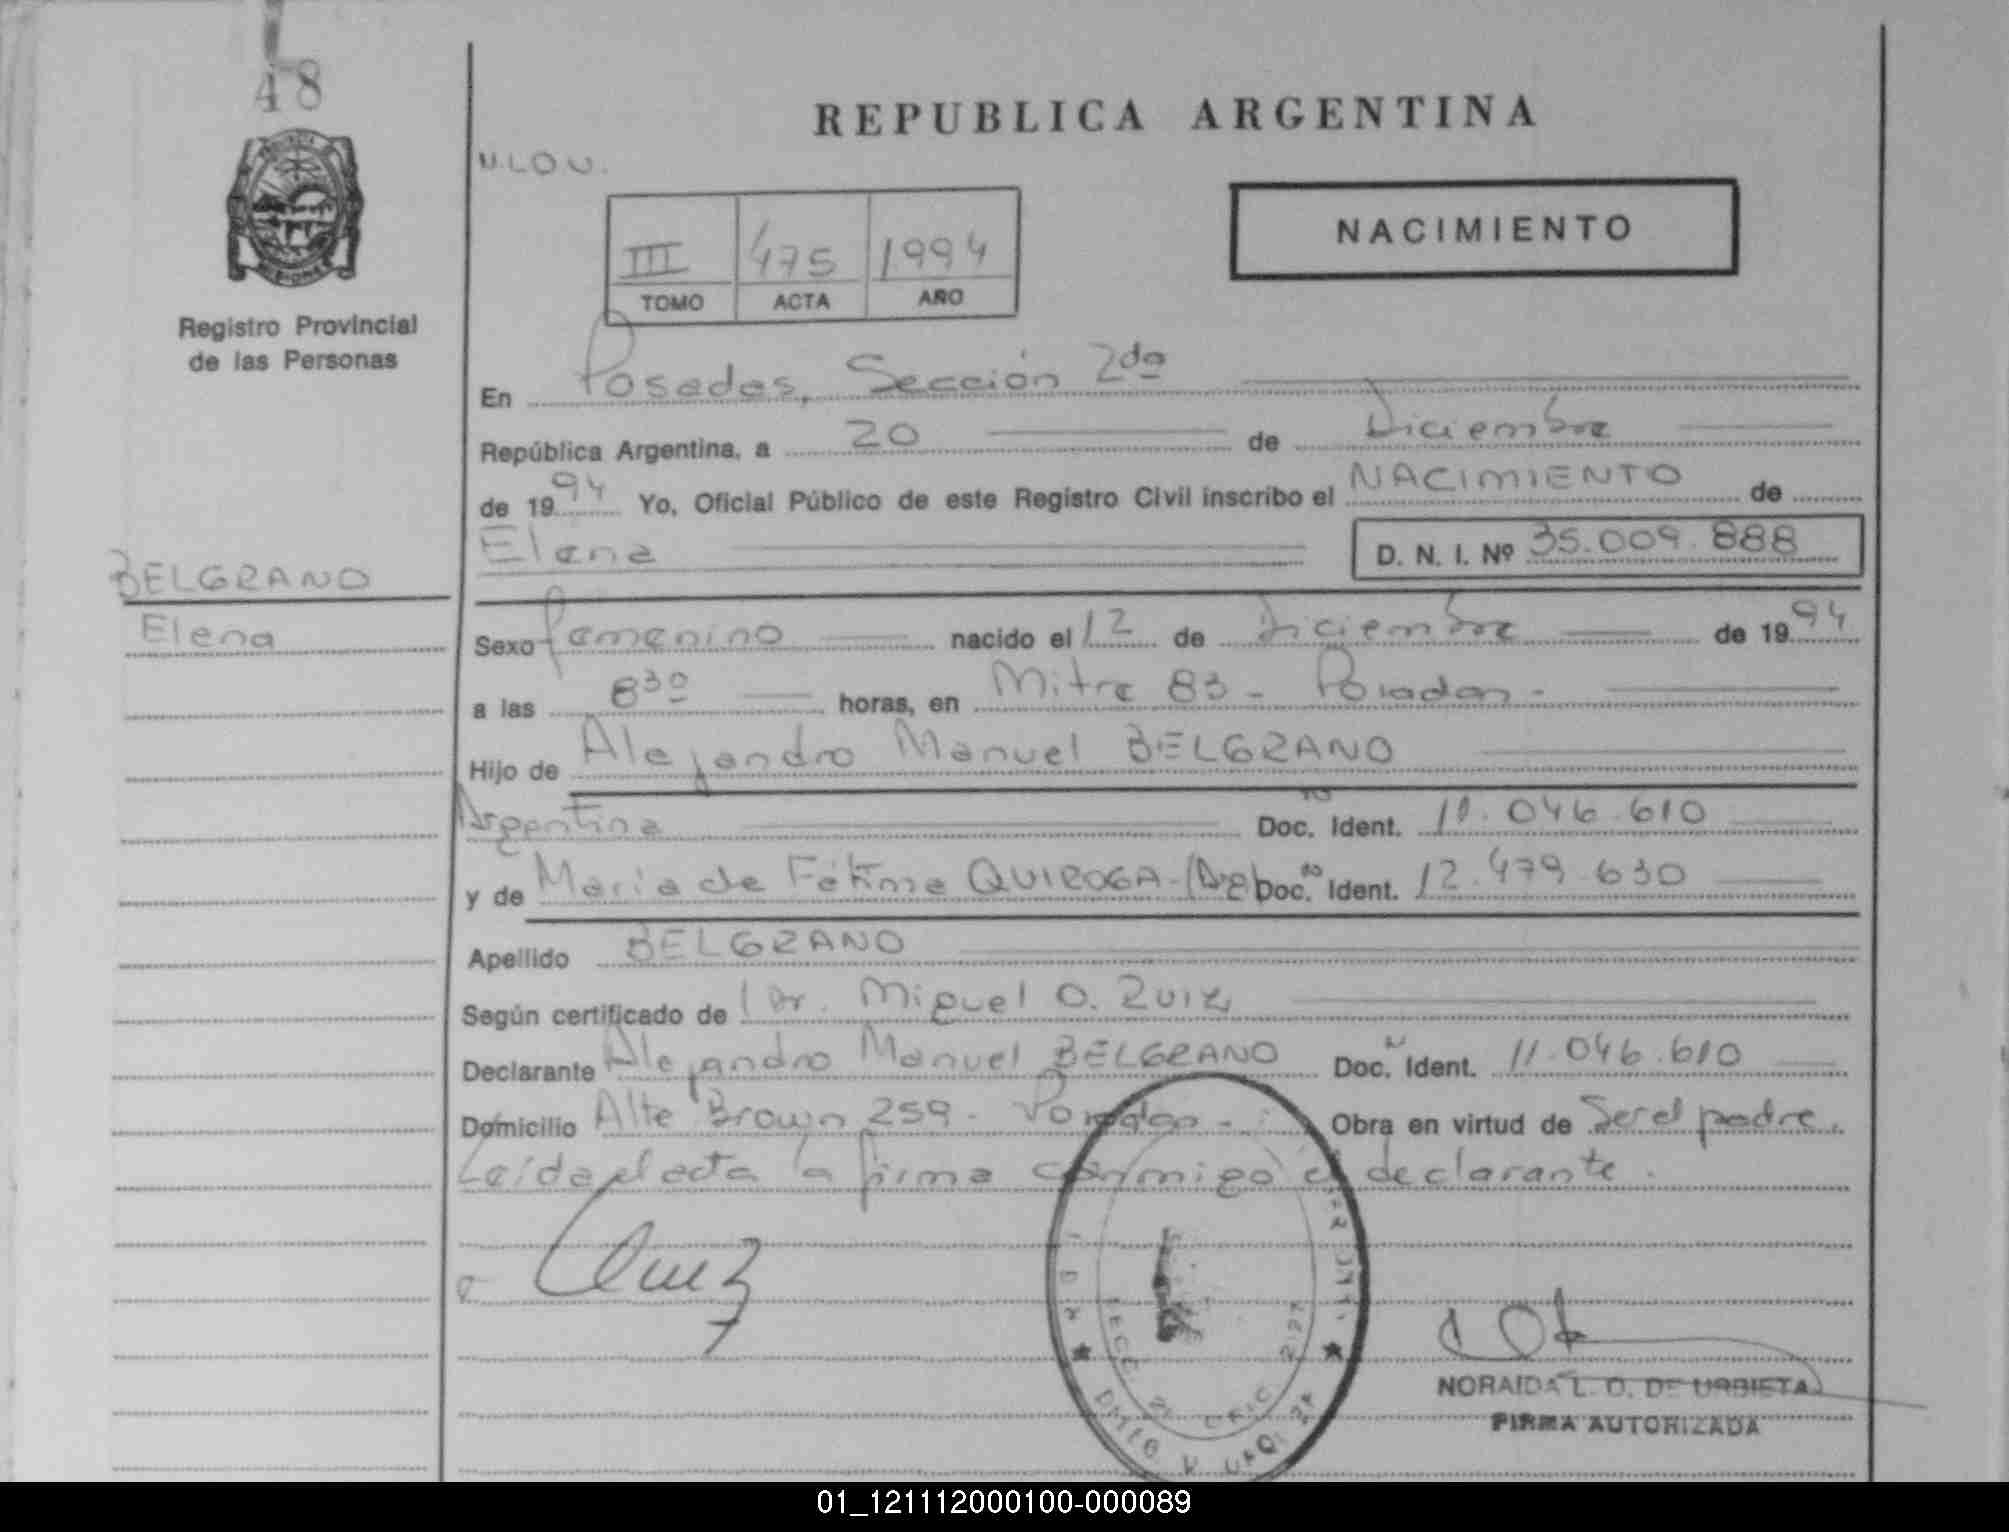 48
REPUBLICA ARGENTINA
N.LO.V.
NACIMIENTO
III 475 1994
TOMO ACTA AÑO
Registro Provincial
de las Personas
En Posadas, Sección 2da
República Argentina, a 20 de Diciembre
de 1994 Yo, Oficial Público de este Registro Civil inscribo el NACIMIENTO de
Elena D. N. I. Nº 35.009.888
BELGRANO
Elena
Sexo femenino nacido el 12 de Diciembre de 1994
a las 8 30 horas, en Mitre 83 - Posadas -
Hijo de Alejandro Manuel BELGRANO
Argentina Doc. Ident. 11.046.610
y de Maria de Fátima QUIROGA - (Arg) Doc. Ident. 12.479.630
Apellido BELGRANO
Según certificado de Dr. Miguel O. Ruiz
Declarante Alejandro Manuel BELGRANO Doc. Ident. 11.046.610
Domicilio Alte Brown 259 - Posadas - Obra en virtud de Ser el padre.
Leída el acta la firma conmigo el declarante.
NORAIDA L. O. DE URBIETA
FIRMA AUTORIZADA
01_121112000100-000089